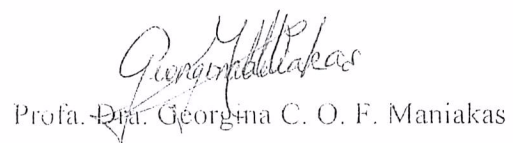 Profa. Dra. Georgina C. O. F. Maniakas